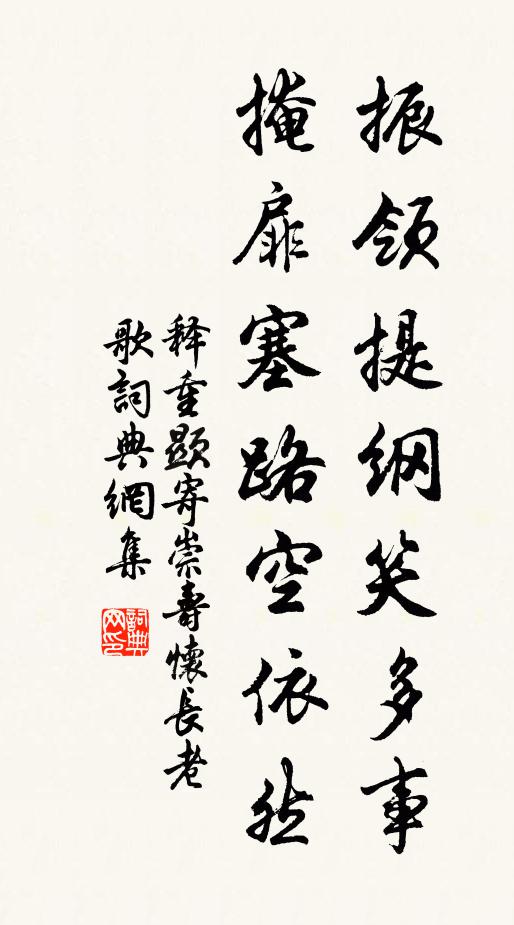 振领提纲笑多事
掩扉塞路空依然
释重显寄崇寿懷長老
歌詞典網集
詞典网印